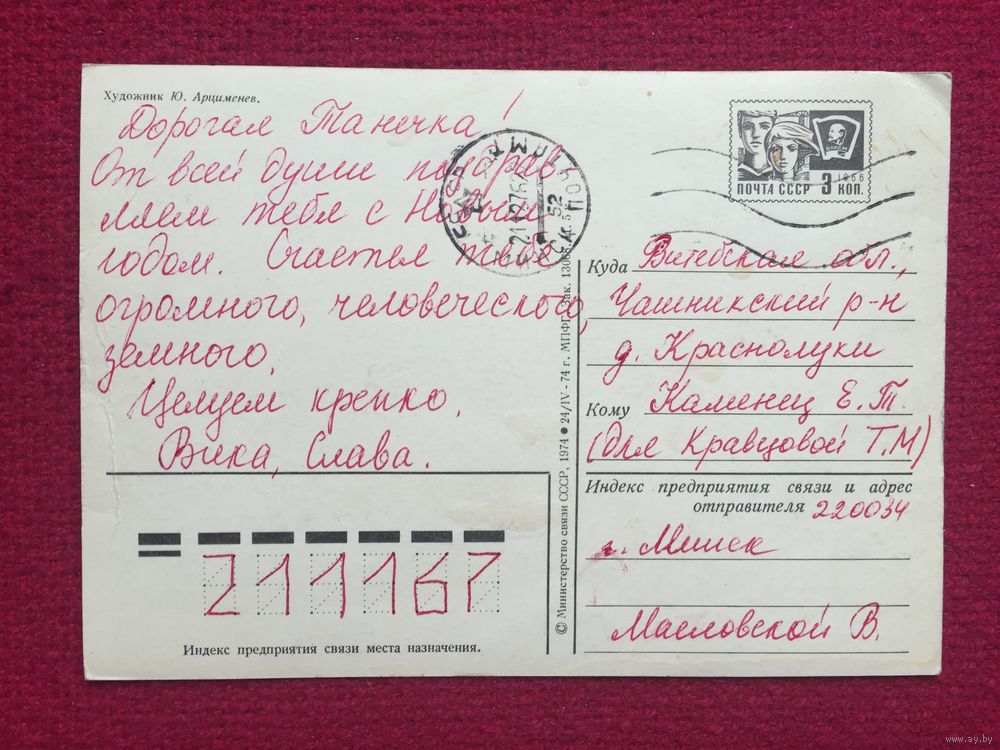 Художник Ю. Арцименев.
Дорогая Танечка!
От всей души поздрав-
ляем тебя с Новым
годом. Счастья тебе
огромного, человеческого,
земного.
Целуем крепко.
Вика, Слава.
211167
Индекс предприятия связи места назначения.
© Министерство связи СССР, 1974 ● 24/IV - 74 г. МПФГ. Зак. 13066.
ПОЧТА СССР 3 КОП.
1966
ВЛКСМ
Куда Витебская обл.,
Чашникский р-н
д. Краснолуки
Кому Каменец Е.Т.
(для Кравцовой Т.М)
Индекс предприятия связи и адрес
отправителя 220034
г. Минск
Масловской В.
www.ay.by